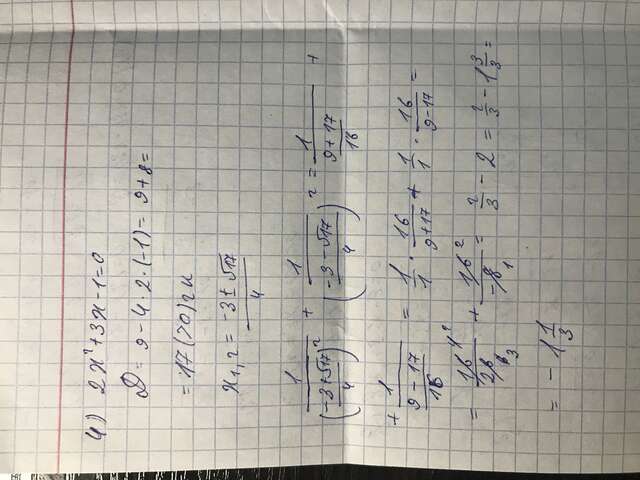 4) 2x²+3x-1=0
D = 9-4·2·(-1) = 9+8 =
= 17 (>0) 2к
x₁,₂ = (-3±√17)/4
1/((-3+√17)/4)² + 1/((-3-√17)/4)² = 1/((9+17)/16) +
+ 1/((9-17)/16) = 1/1 · 16/(9+17) + 1/1 · 16/(9-17) =
= 16/26 + 16/-8 = 2/3 - 2 = 2/3 - 1 3/3 =
= - 1 1/3